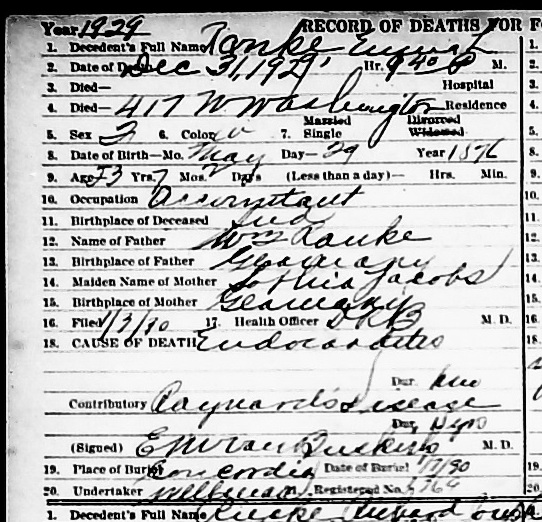 Year 1929 RECORD OF DEATHS FOR F
1. Decedent's Full Name Ranke
2. Date of Death Dec 31, 1929 Hr. 9 40 P M.
3. Died— Hospital
4. Died— 417 W Washington Residence
5. Sex 6. Color W 7. Married Single Divorced Widowed
8. Date of Birth—Mo. May Day— 29 Year 1876
9. Age 53 Yrs. 7 Mos. 2 Days (Less than a day)— Hrs. Min.
10. Occupation Accountant
11. Birthplace of Deceased Ind
12. Name of Father Wm Ranke
13. Birthplace of Father Germany
14. Maiden Name of Mother Sophia Jacobs
15. Birthplace of Mother Germany
16. Filed 1/3/30 17. Health Officer M. D.
18. CAUSE OF DEATH Endocarditis
Dur.
Contributory Raynard's Disease
Dur.
(Signed) E M Van Buskirk M. D.
19. Place of Burial Concordia Date of Burial
20. Undertaker Wellman Registered No.
1. Decedent's Full Name